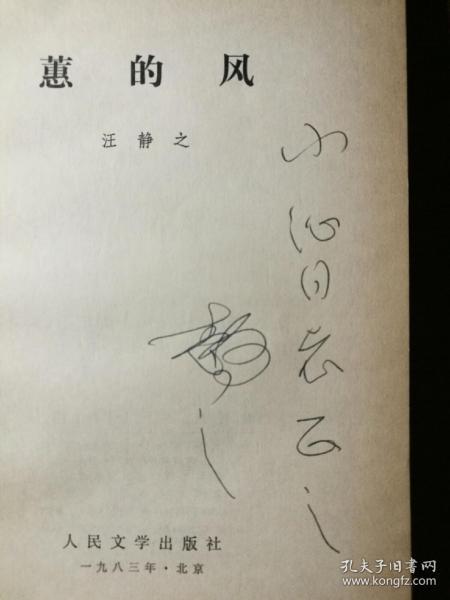 蕙的风
汪静之
小沁同志正之
静之
人民文学出版社
一九八三年·北京
孔夫子旧书网
www.kongfz.com